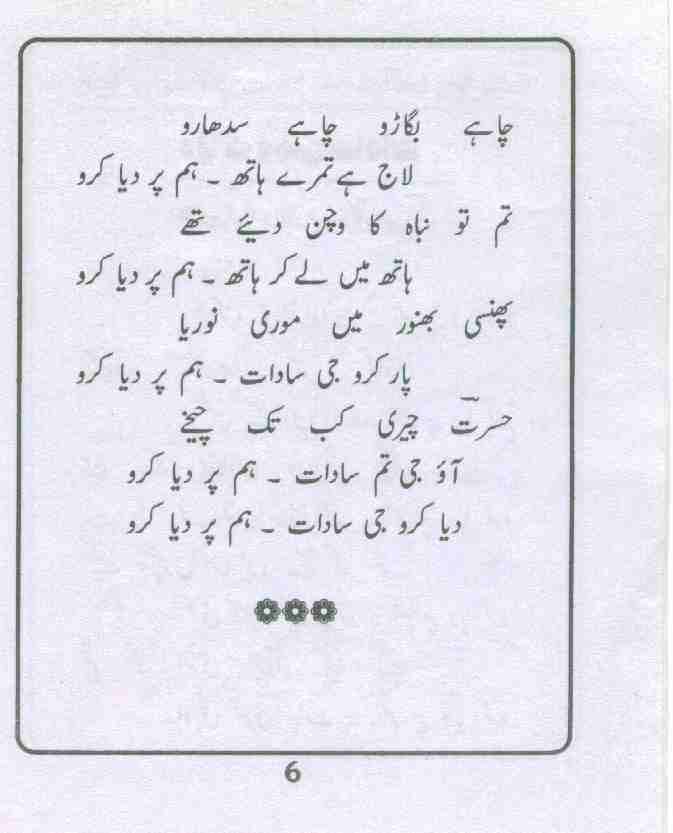 چاہے بگاڑو چاہے سدھارو
لاج ہے تمرے ہاتھ ۔ ہم پر دیا کرو
تم تو نباہ کا وچن دیئے تھے
ہاتھ میں لے کر ہاتھ ۔ ہم پر دیا کرو
پھنسی بھنور میں موری نوریا
پار کرو جی سادات ۔ ہم پر دیا کرو
حسرتؔ چیری کب تک چیخے
آؤ جی تم سادات ۔ ہم پر دیا کرو
دیا کرو جی سادات ۔ ہم پر دیا کرو
6